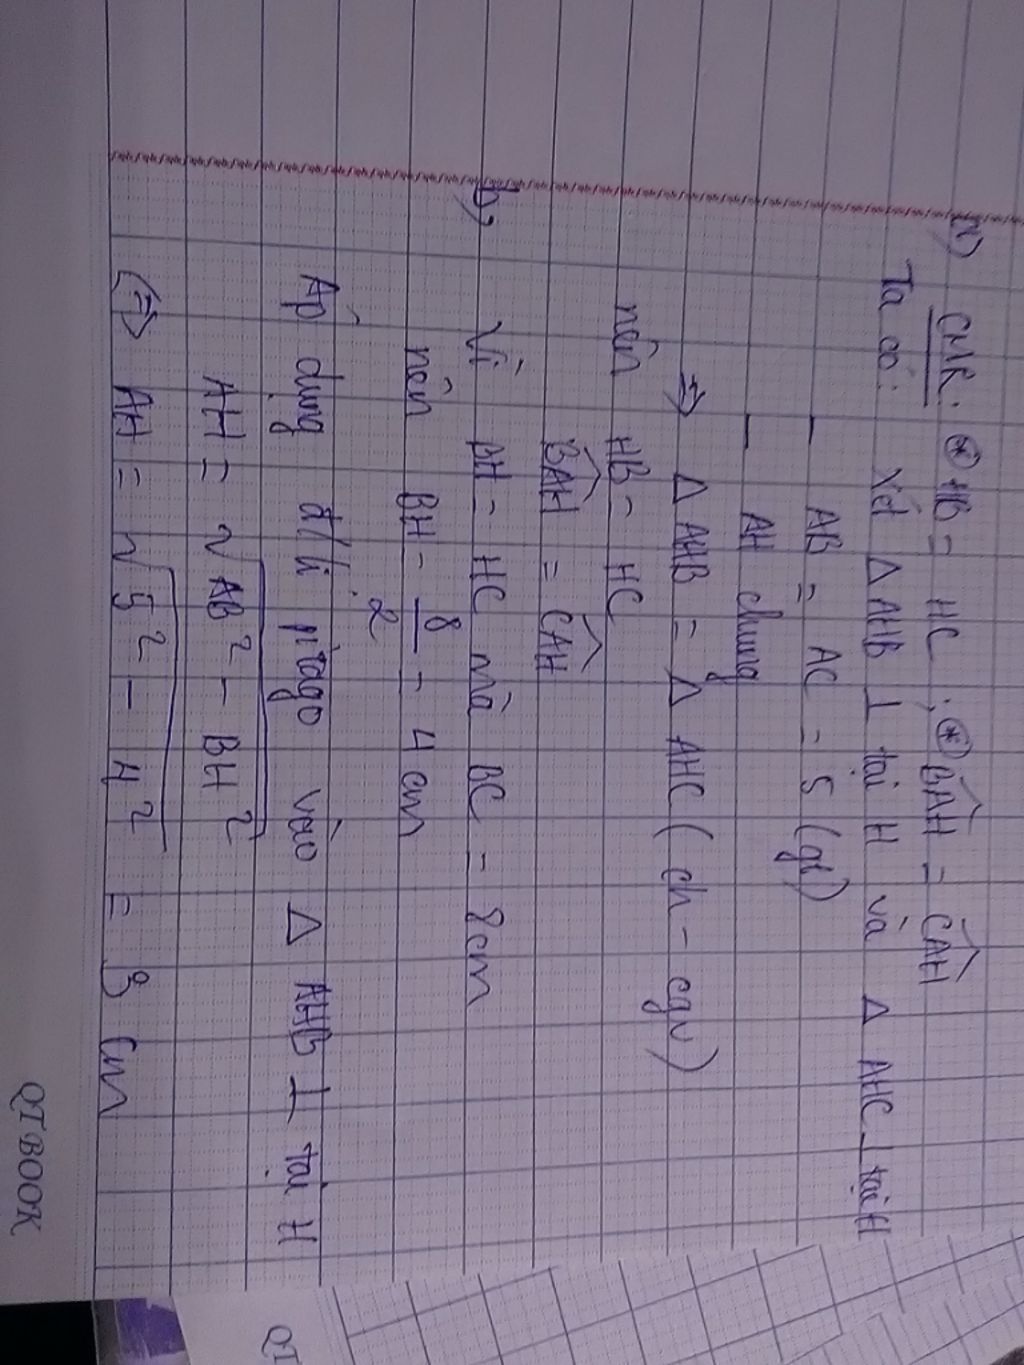 a) CMR: ⊛ HB = HC ; ⊛ \widehat{BAH} = \widehat{CAH}
Ta có: Xét Δ AHB ⊥ tại H và Δ AHC ⊥ tại H
— AB = AC = 5 (gt)
— AH chung
=> Δ AHB = Δ AHC (ch - cgv)
nên HB = HC
\widehat{BAH} = \widehat{CAH}
b) Vì BH = HC mà BC = 8cm
nên BH = \frac{8}{2} = 4 cm
Áp dụng đ/lí pitago vào Δ AHB ⊥ tại H
AH = √AB² - BH²
(=> AH = √5² - 4² = 3 cm
QT BOOK
QT